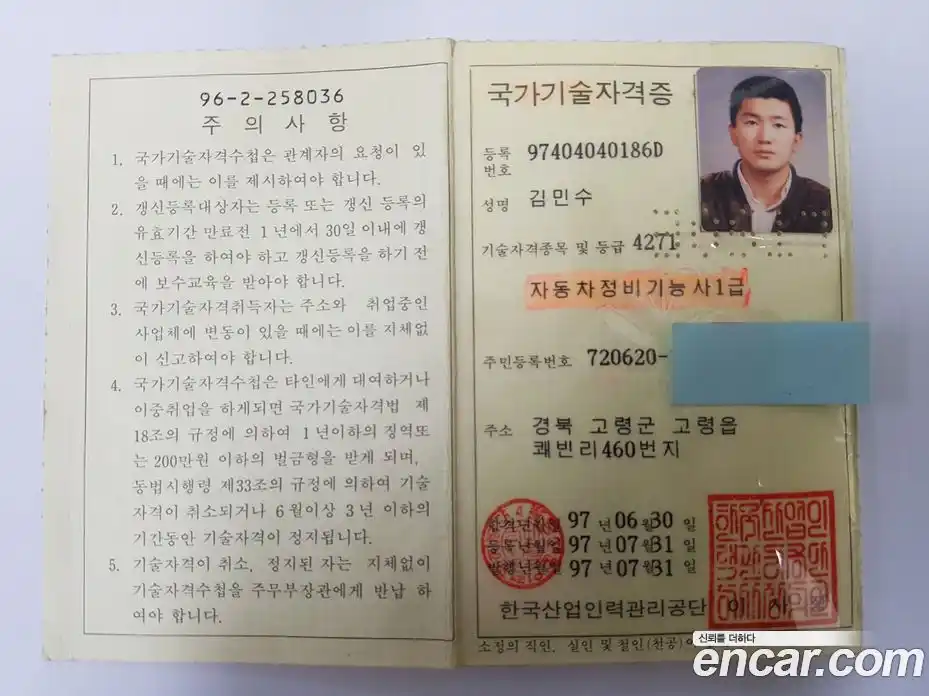 96-2-258036
주 의 사 항
1. 국가기술자격수첩은 관계자의 요청이 있
을 때에는 이를 제시하여야 합니다.
2. 갱신등록대상자는 등록 또는 갱신 등록의
유효기간 만료전 1년에서 30일 이내에 갱
신등록을 하여야 하고 갱신등록을 하기 전
에 보수교육을 받아야 합니다.
3. 국가기술자격취득자는 주소와 취업중인
사업체에 변동이 있을 때에는 이를 지체없
이 신고하여야 합니다.
4. 국가기술자격수첩은 타인에게 대여하거나
이중취업을 하게되면 국가기술자격법 제
18조의 규정에 의하여 1년이하의 징역또
는 200만원 이하의 벌금형을 받게 되며,
동법시행령 제33조의 규정에 의하여 기술
자격이 취소되거나 6월이상 3년 이하의
기간동안 기술자격이 정지됩니다.
5. 기술자격이 취소, 정지된 자는 지체없이
기술자격수첩을 주무부장관에게 반납 하
여야 합니다.
국가기술자격증
등록번호 97404040186D
성명 김민수
기술자격종목 및 등급 4271
자동차정비기능사1급
주민등록번호 720620-
주소 경북 고령군 고령읍
쾌빈리460번지
합격년월일 97년 06월 30일
등록년월일 97년 07월 31일
발행년월일 97년 07월 31일
한국산업인력관리공단 이사장
소정의 직인, 실인 및 철인(천공)이
신뢰를 더하다
encar.com